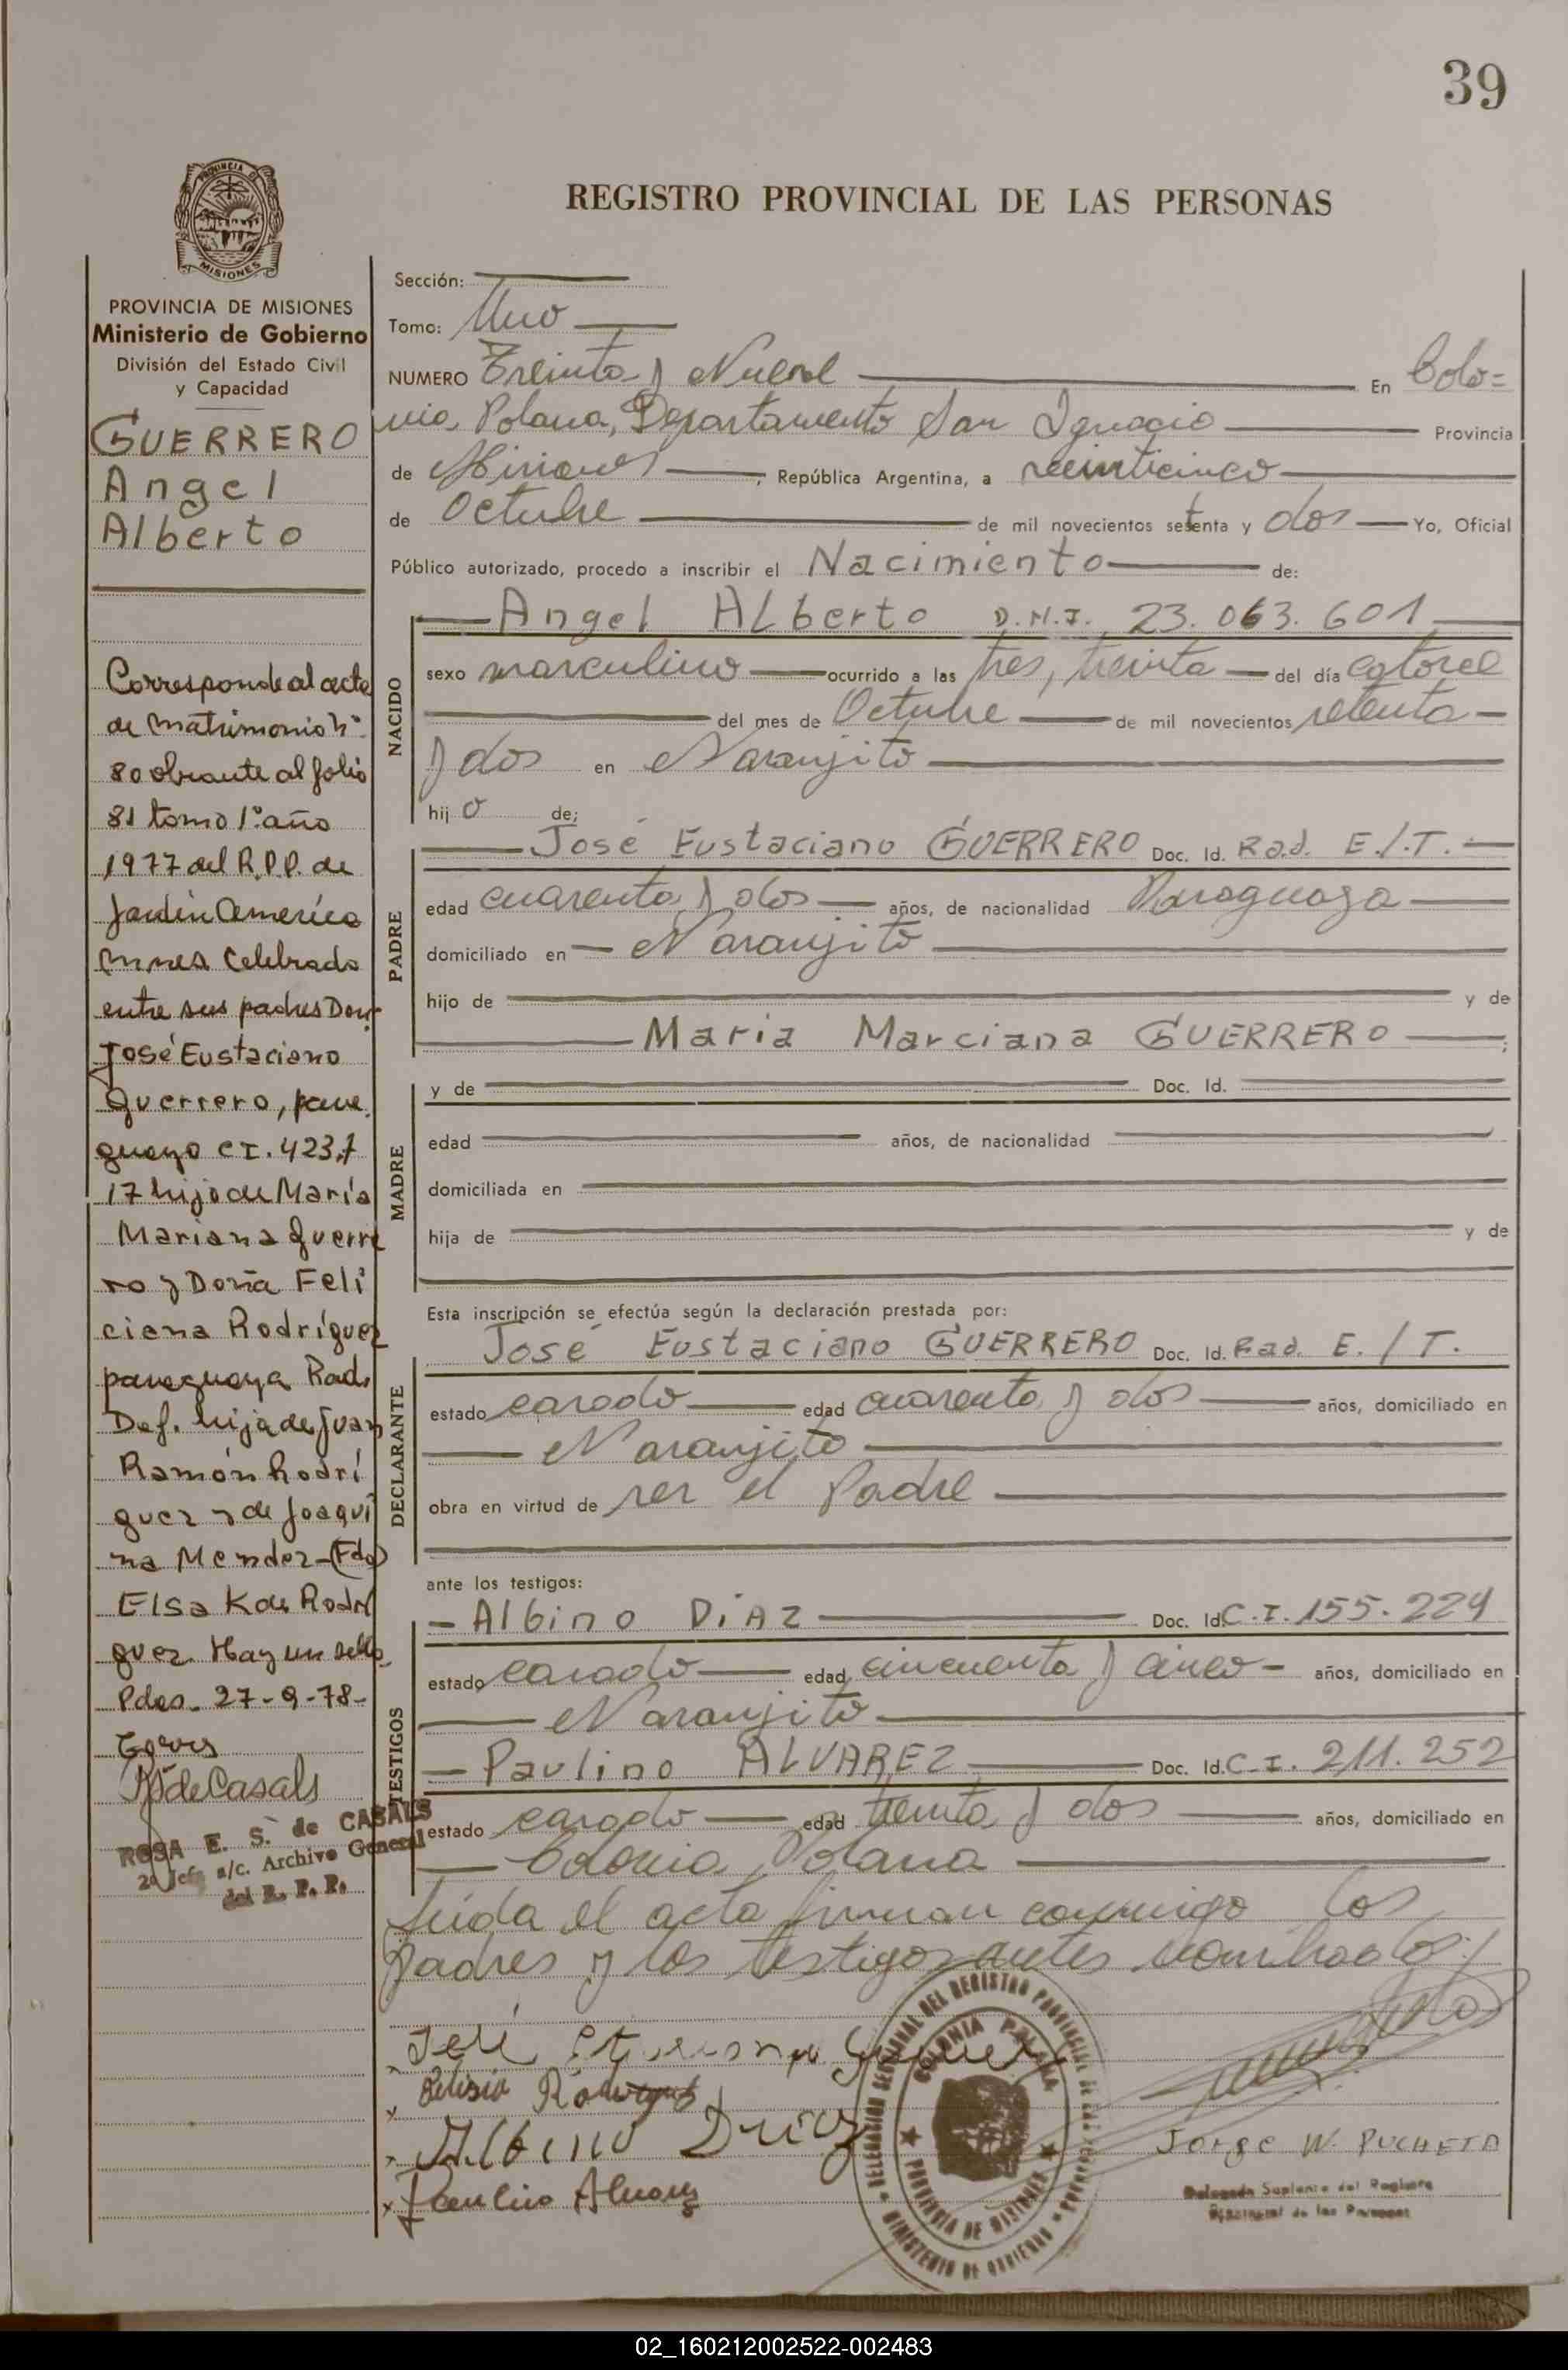 39
REGISTRO PROVINCIAL DE LAS PERSONAS
PROVINCIA DE
MISIONES
PROVINCIA DE MISIONES
Ministerio de Gobierno
División del Estado Civil
y Capacidad
GUERRERO
Angel
Alberto
Corresponde al acta
de matrimonio nº
80 obrante al folio
81 tomo 1º año
1977 del R.P.P. de
Jardín America
Mnes Celebrado
entre sus padres Don
José Eustaciano
Guerrero, para
guayo CI. 423.7
17 hijo de María
Mariana Guerre
ro y Doña Feli
ciana Rodríguez
paraguaya Rad.
Def. hija de Juan
Ramón Rodrí
guez y de Joaqui
na Mendez-(Fdo)
Elsa K de Rodri
guez. Hay un sello
Pdas. 27-9-78-
RS de Casals
ROSA E. S. de CASALS
2º Jefe a/c. Archivo General
del R. P. P.
Sección:
Tomo: Uno
NUMERO Treinta y Nueve En Colo=
nia Polana, Departamento San Ignacio Provincia
de Misiones, República Argentina, a veinticinco
de Octubre de mil novecientos setenta y dos Yo, Oficial
Público autorizado, procedo a inscribir el Nacimiento de:
Angel ALberto D.N.I. 23.063.601
NACIDO
sexo masculino ocurrido a las tres, treinta del día catorce
del mes de Octubre de mil novecientos setenta
y dos en Naranjito
hijo de;
PADRE
José Eustaciano GUERRERO Doc. Id. Rad. E./T.
edad cuarenta y dos años, de nacionalidad Paraguaya
domiciliado en Naranjito
hijo de y de
Maria Marciana GUERRERO;
MADRE
y de Doc. Id.
edad años, de nacionalidad
domiciliada en
hija de y de
Esta inscripción se efectúa según la declaración prestada por:
DECLARANTE
José Eustaciano GUERRERO Doc. Id. Rad. E./T.
estado casado edad cuarenta y dos años, domiciliado en
Naranjito
obra en virtud de ser el Padre
ante los testigos:
TESTIGOS
Albino DiAZ Doc. Id. C.I. 155.229
estado casado edad cincuenta y cinco años, domiciliado en
Naranjito
Paulino ALVAREZ Doc. Id. C.I. 211.252
estado casado edad treinta y dos años, domiciliado en
Colonia Polana
Leida el acta firman conmigo los
padres y los testigos antes nombrados:/
Albino Diaz
Paulino Alvarez
DELEGACION SECCIONAL DEL REGISTRO PROVINCIAL DE LAS PERSONAS
COLONIA POLANA
PROVINCIA DE MISIONES
MINISTERIO DE GOBIERNO
Jorge W. PUCHETA
Delegado Suplente del Registro
Provincial de las Personas
02_160212002522-002483